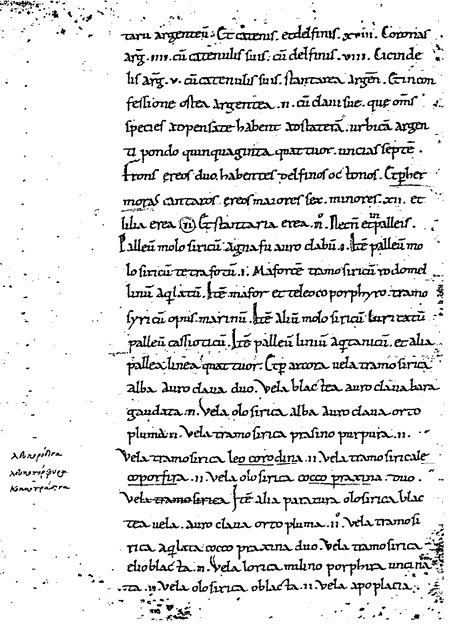 tarii argenteū. Et catenis. et delfinis. xviii. Coronas
arg̃. iiii. cū catenulis suis. cū delfinis. viii. Cicinde
lis arg̃. v. cū catenulis suis. stantarea argen̄. Et in con
fessione ostea argentea. ii. cū clavi sue. que om̄s
species xopensate habent xostaterā. urbicā argen
ti pondo quinquaginta quattuor. uncias septē.
frons ereos duo habentes delfinos octonos. Et p her
moras cantaros ereos maiores sex. minores. xii. et
lilia erea (ii) Et stantaria erea. ii. Nec n̄ et palleis.
Palleū molosiricū aquafu auro clabū. i. Itē palleū mo
losiricū tetrafotū. i. Maforte tramosiricū rodomel
linū aqlatū. Itē mafor et teleoco porphyro. tramo
syricū opus marinū. Itē aliū molosiricū
palleū cassioticū. Itē palleū linū aqtanicū. et alia
pallea linea quattuor. Et p arcora vela tramosirica
alba auro clava duo. Vela blactea auro clava bara
gaudata. ii. Vela olosirica alba auro clava orto
pluma. ii. Vela tramosirica prasino purpura. ii.
Vela tramosirica leocorodina. ii. Vela tramosiricale
coporfira. ii. Vela olosirica coccoprasina. duo.
Vela tramosirica Itē alia paratura olosirica blac
tea vela. auro clava ortopluma. ii. Vela tramosi
rica aqlata coccoprasina duo. Vela tramosirica
elioblacta. ii. Vela lorica milino porphira uncina
ta. ii. Vela olosirica oblacta. ii. Vela apoplacia.